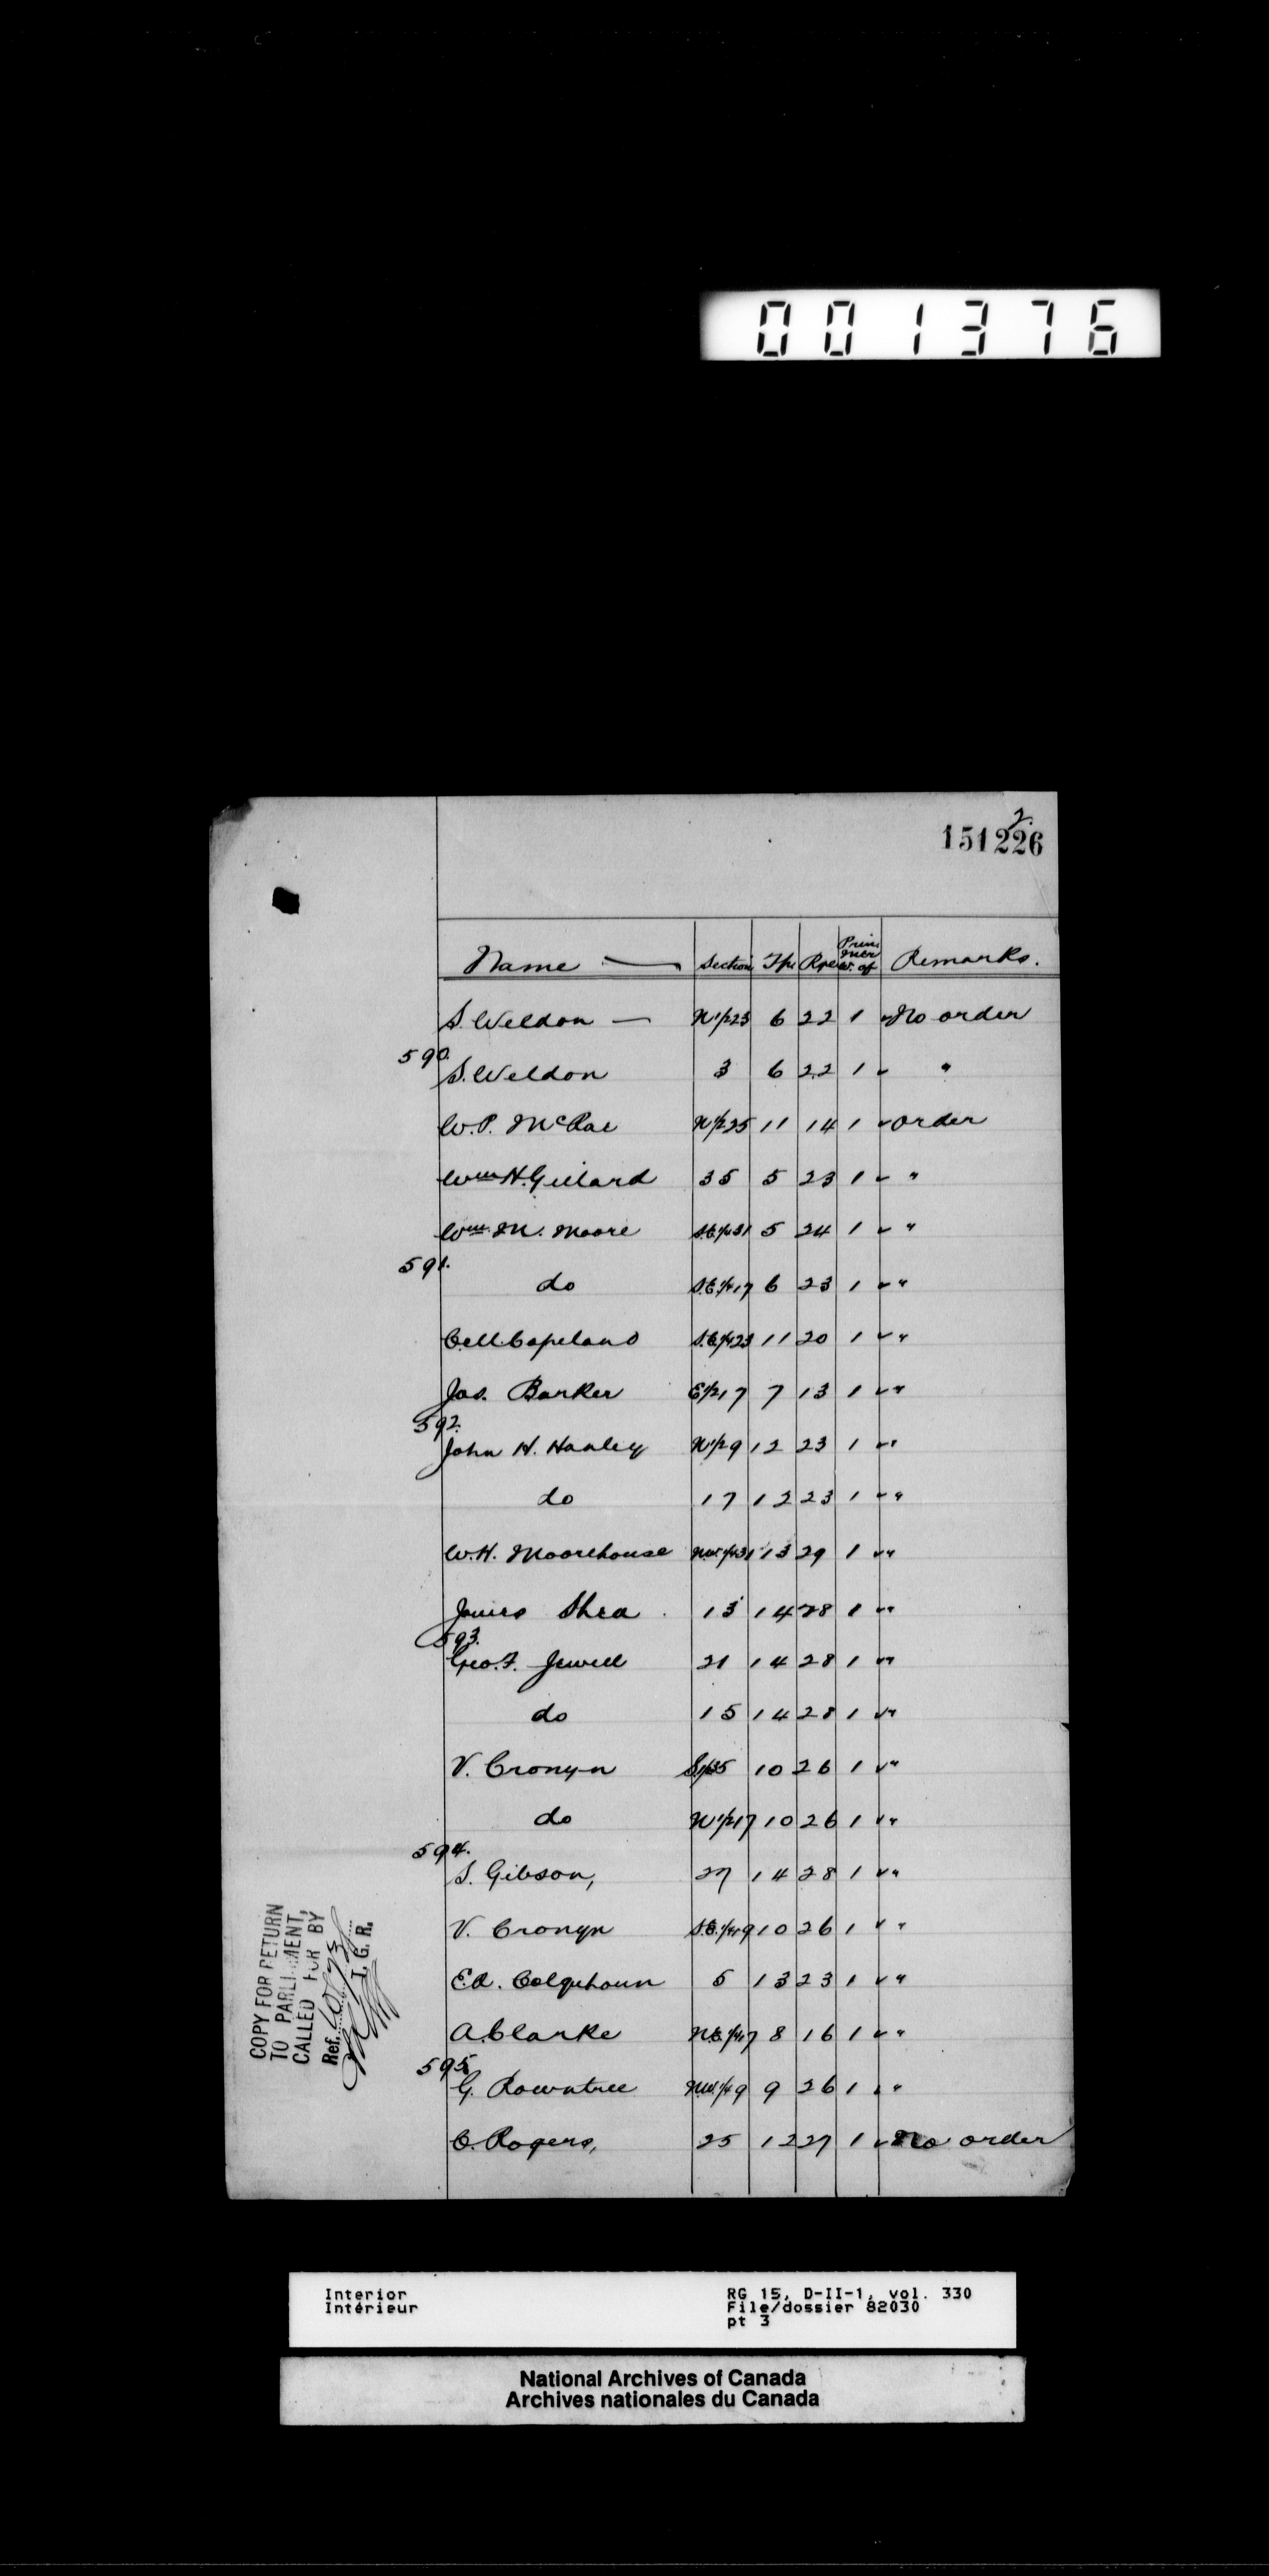 001376
2.
151226
Name — Section Tp Rge Prin Mer W. of Remarks.
S. Weldon — N½23 6 22 1 ✓ No order
590.
S. Weldon 3 6 22 1 ✓ "
W.P. McRae N½25 11 14 1 ✓ order
Wm H. Gillard 35 5 23 1 ✓ "
Wm M. Moore S.E.¼31 5 24 1 ✓ "
591.
do S.E.¼17 6 23 1 ✓ "
Copeland S.E.¼23 11 20 1 ✓ "
Jas. Barker E½17 7 13 1 ✓ "
592.
John H. Hanley N½9 12 23 1 ✓ "
do 17 12 23 1 ✓ "
W.H. Moorehouse N.W.¼31 13 29 1 ✓ "
James Shea 13 14 28 1 ✓ "
593.
Geo. F. Jewell 21 14 28 1 ✓ "
do 15 14 28 1 ✓ "
V. Cronyn S½35 10 26 1 ✓ "
do N½17 10 26 1 ✓ "
594.
S. Gibson, 27 14 28 1 ✓ "
V. Cronyn S.E.¼19 10 26 1 ✓ "
E.A. Colquhoun 5 13 23 1 ✓ "
A. Clarke N.E.¼17 8 16 1 ✓ "
595.
G. Rowntree N.W.¼9 9 26 1 ✓ "
C. Rogers, 25 12 27 1 ✓ No order
COPY FOR RETURN
TO PARLIAMENT,
CALLED FOR BY
Ref.
I. G. R.
Interior
Intérieur
RG 15, D-II-1, vol. 330
File/dossier 82030
pt 3
National Archives of Canada
Archives nationales du Canada